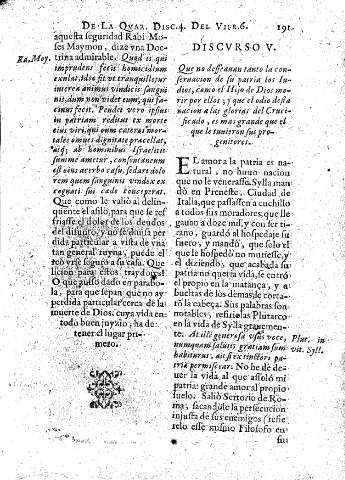 DE LA QVAR. DISC. 4. DEL VIER. 6. 191.
aquesta seguridad Rabi Mo-
Ra. Moy. ses Maymon, dize vna Doc
trina admirable. Quod is qui
imprudens fecit homicidium
exulat, ideo fit vt tranquilletur
interea animus vindicis sangui
nis, dum non videt eum, qui fa-
cinus fecit. Pendet vero ipsius
in patriam reditus ex morte
eius viri, qui cum cæteros mor-
tales omnes dignitate præcellat,
atq; ab hominibus Israelitis
summe ametur, consentaneum
est eius acerbo casu, sedari dolo
rem quem sanguinis vindex ex
cognati sui cæde conceperat.
Que como le valió al delin-
quente el asilo, para que se res
friasse el dolor de los deudos
del difunto, y no se diuisa per
dida particular a vista de vna
tan general ruyna, puede el
reo yrse seguro a su casa. Que
hizieron para estos traydores?
O que quiso dado en parabo-
la, para que sepan que no ay
perdida particular cerca de la
muerte de Dios, cuya vida en
todo buen juyzio, ha de
tener el lugar pri-
mero.
DISCVRSO V.
Que no desseauan tanto la
conseruacion de su patria los Iu-
dios, como el Hijo de Dios mo-
rir por ellos, y que el odio desta
nacion a las glorias del Cruci-
ficado, es mas grande que el
que le tuuieron sus pro-
genitores.
EL amor a la patria es na-
tural, no huuo nacion
que no le venerasse. Sylla man
dó en Preneste, Ciudad de
Italia, que passassen a cuchillo
a todos sus moradores, que lle
gauan a doze mil, y con ser ti-
rano, guardó al hospedaje su
fuero, y mandó, que solo el
que le hospedó no muriesse, y
el diziendo, que acabada su
patria no queria vida, se entró
el propio en la matança, y a
bueltas de los demas, le corta-
ron la cabeça. Sus palabras son
notables, refirelas Plutarco
en la vida de Sylla grauemen-
te. At ille generosa vsus voce, Plut. in
nunquam salutis gratiam sum vit. Syll.
habiturus, ait se extinctori pa-
triæ permiscear. No he de de-
uer la vida al que assoló mi
patria: grande amor al propio
suelo. Salió Sertorio de Ro-
ma, sacandole la persecucion
injusta de sus enemigos (refie
relo esse mismo Filosofo en
su